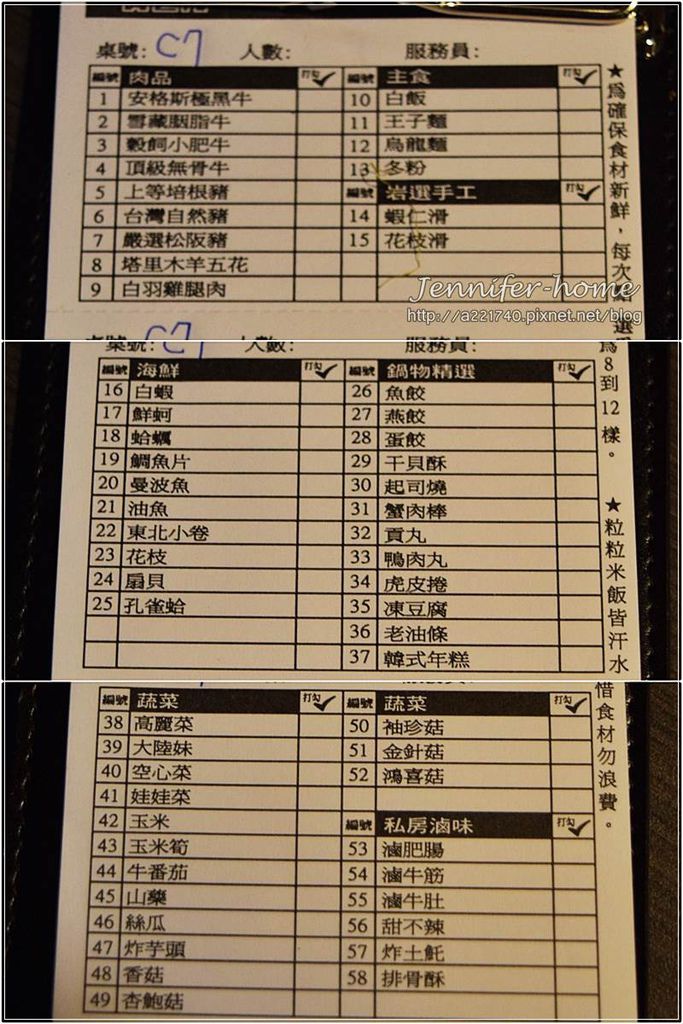 桌號: C7 人數: 服務員:
編號 肉品 打勾
1 安格斯極黑牛
2 雪藏胭脂牛
3 穀飼小肥牛
4 頂級無骨牛
5 上等培根豬
6 台灣自然豬
7 嚴選松阪豬
8 塔里木羊五花
9 白羽雞腿肉
編號 主食 打勾
10 白飯
11 王子麵
12 烏龍麵
13 冬粉
編號 岩選手工 打勾
14 蝦仁滑
15 花枝滑
★為確保食材新鮮，每次
Jennifer-home
http://a221740.pixnet.net/blog
桌號: C7 人數: 服務員:
編號 海鮮 打勾
16 白蝦
17 鮮蚵
18 蛤蠣
19 鯛魚片
20 曼波魚
21 油魚
22 東北小卷
23 花枝
24 扇貝
25 孔雀蛤
編號 鍋物精選 打勾
26 魚餃
27 燕餃
28 蛋餃
29 干貝酥
30 起司燒
31 蟹肉棒
32 貢丸
33 鴨肉丸
34 虎皮捲
35 凍豆腐
36 老油條
37 韓式年糕
為8到12樣。
★粒粒米飯皆汗水
編號 蔬菜 打勾
38 高麗菜
39 大陸妹
40 空心菜
41 娃娃菜
42 玉米
43 玉米筍
44 牛番茄
45 山藥
46 絲瓜
47 炸芋頭
48 香菇
49 杏鮑菇
編號 蔬菜 打勾
50 袖珍菇
51 金針菇
52 鴻喜菇
編號 私房滷味 打勾
53 滷肥腸
54 滷牛筋
55 滷牛肚
56 甜不辣
57 炸土魠
58 排骨酥
惜食材勿浪費。